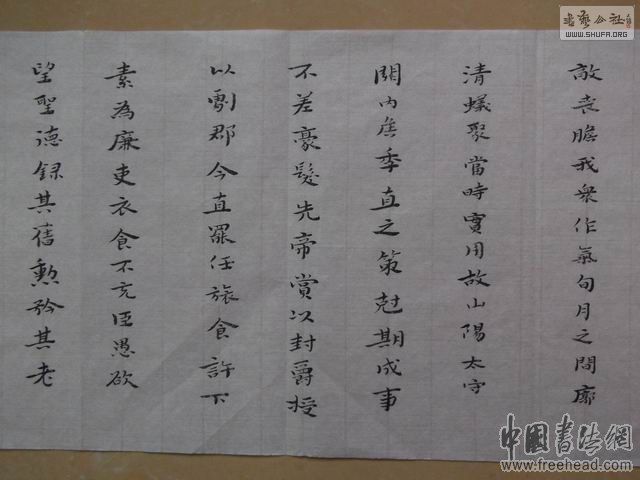 敵喪膽我衆作氣旬月之間廓
清蟻聚當時實用故山陽太守
關內侯季直之策尅期成事
不差豪髮先帝賞以封爵授
以劇郡今直罷任旅食許下
素為廉吏衣食不充臣愚欲
望聖德錄其舊勳矜其老
書藝公社
WWW.SHUFA.ORG
中國書法網
www.freehead.com